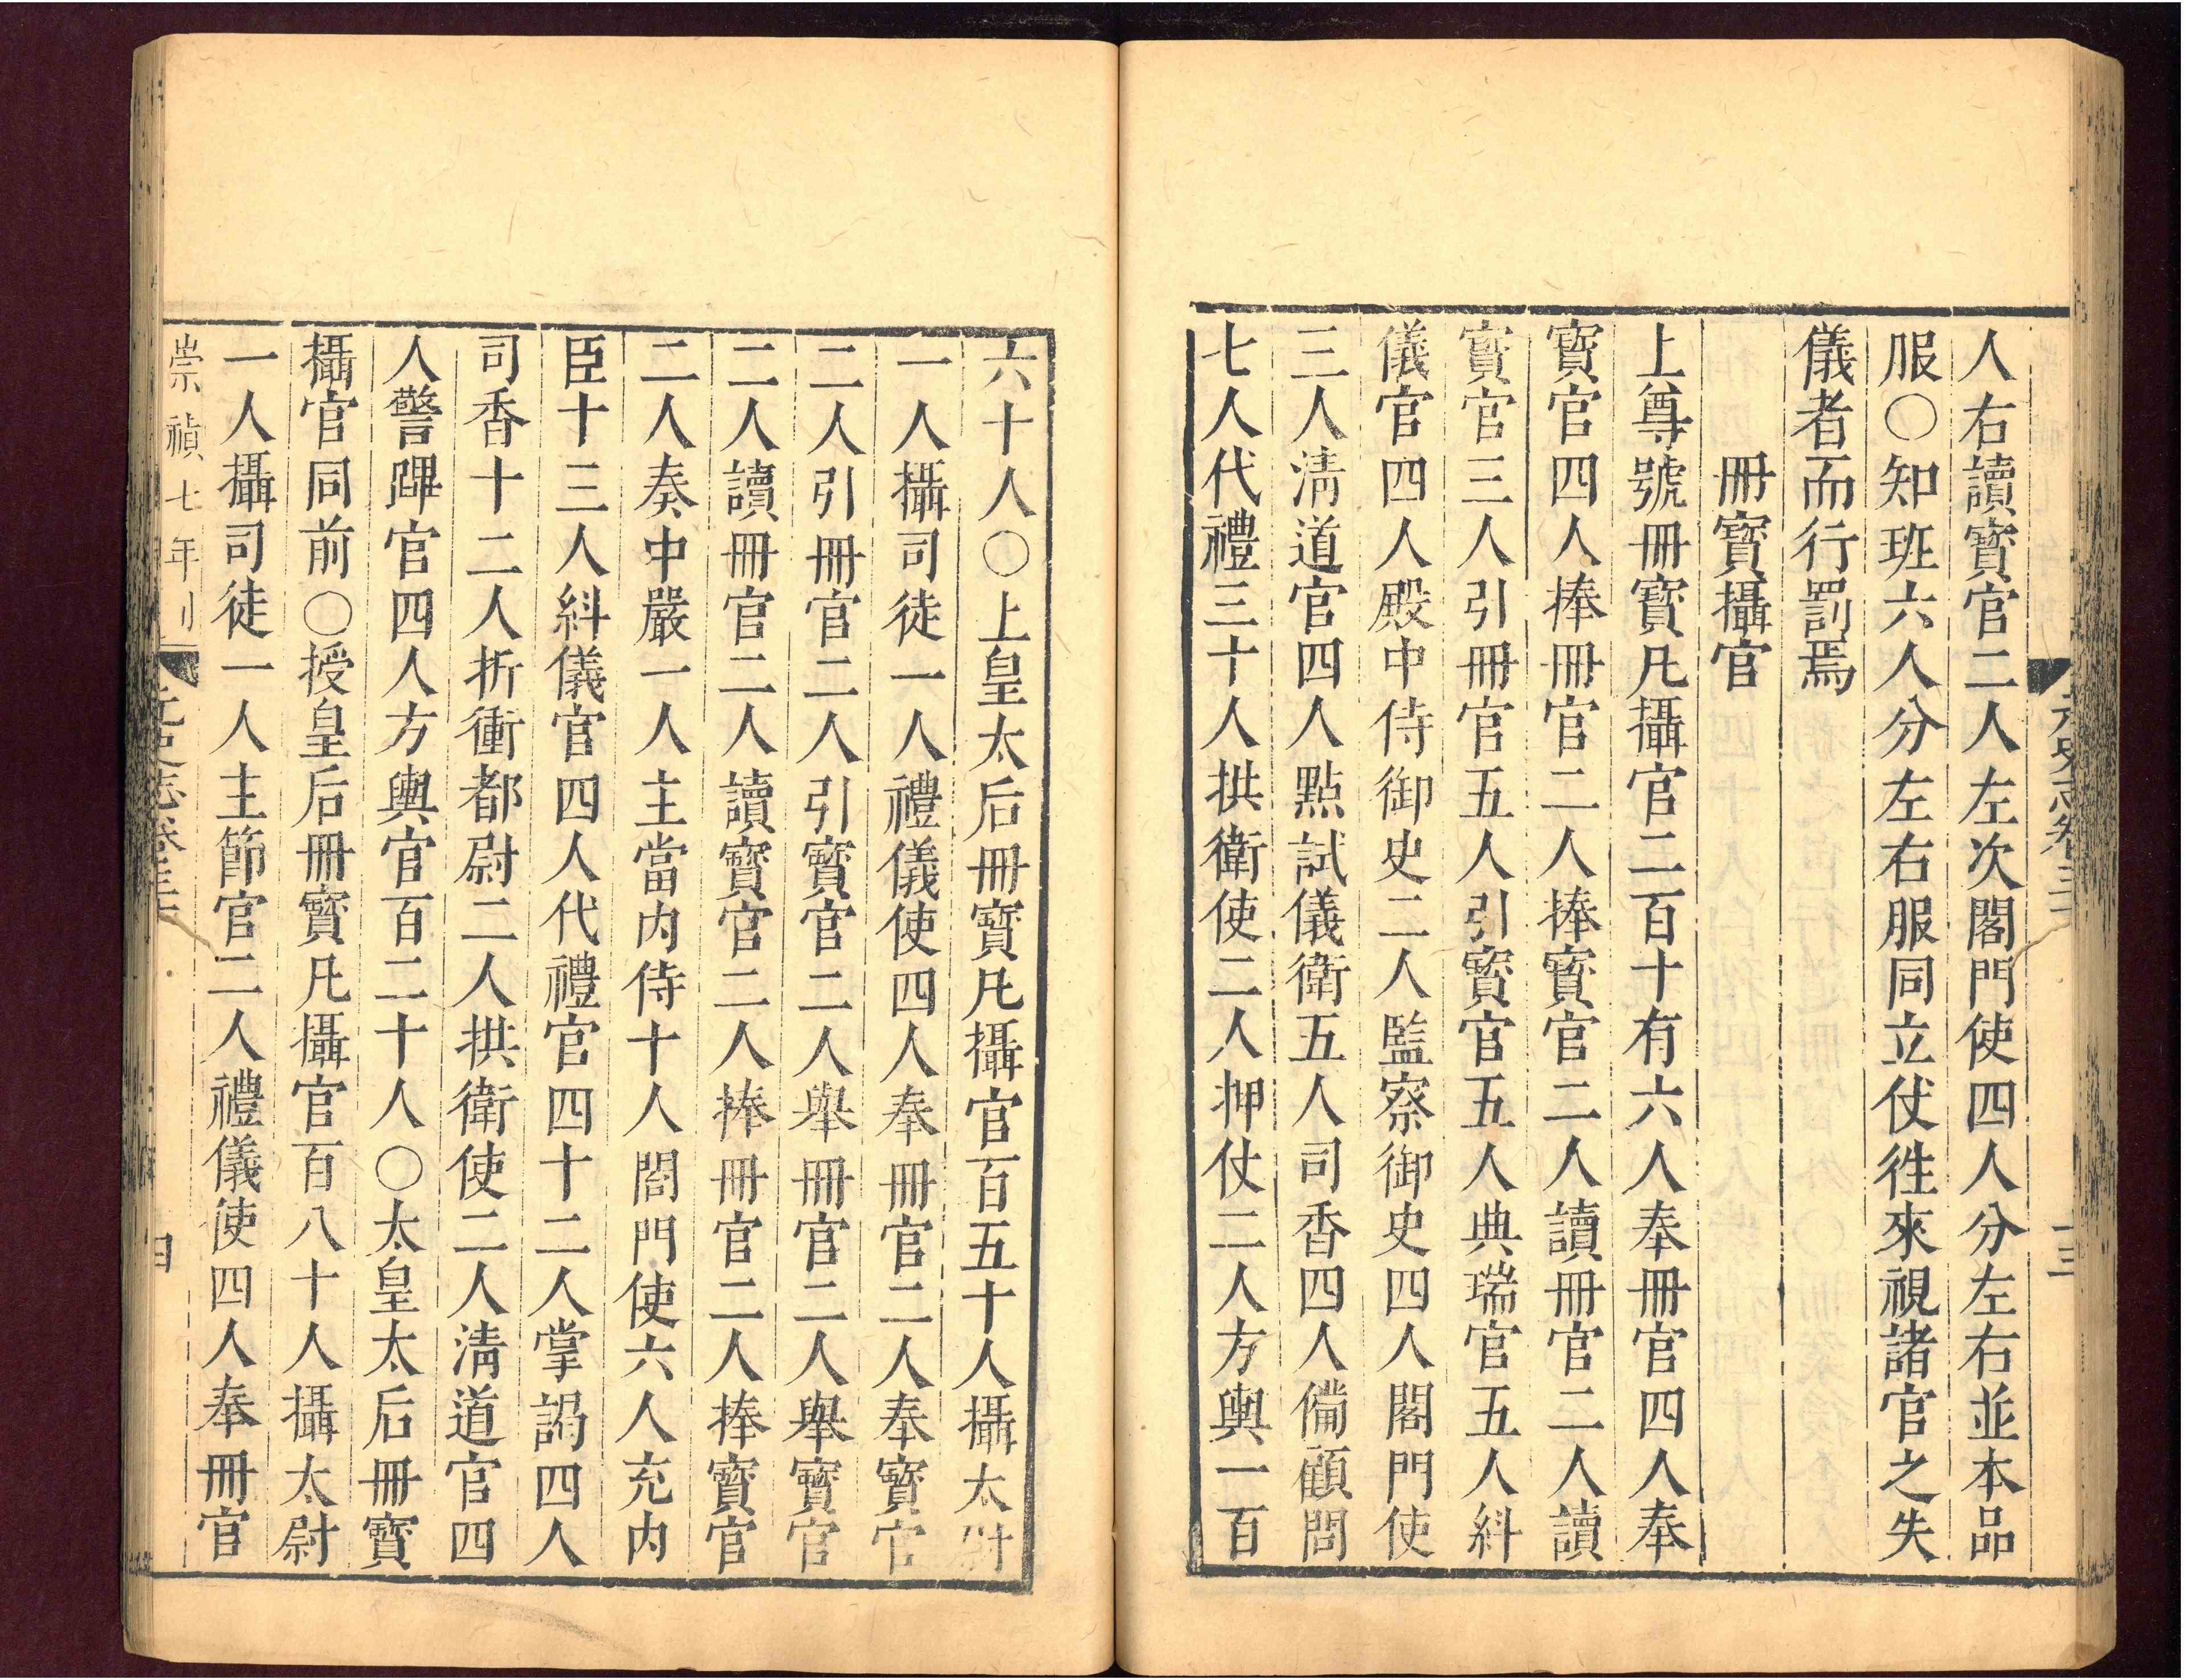 人右讀寶官二人左次閣門使四人分左右並本品
服○知班六人分左右服同立仗徃來視諸官之失
儀者而行罰焉
冊寶攝官
上尊號冊寶凡攝官二百十有六人奉冊官四人奉
寶官四人捧冊官二人捧寶官二人讀冊官二人讀
寳官三人引冊官五人引寳官五人典瑞官五人糾
儀官四人殿中侍御史二人監察御史四人閣門使
三人清道官四人點試儀衛五人司香四人備顧問
七人代禮三十人拱衛使二人押仗二人方輿一百
六十人○上皇太后冊寶凡攝官百五十人攝太尉
一人攝司徒一人禮儀使四人奉冊官二人奉寶官
二人引冊官二人引寳官二人舉冊官二人舉寶官
二人讀冊官二人讀寳官二人捧冊官二人捧寶官
二人奏中嚴一人主當内侍十人閤門使六人充内
臣十三人糾儀官四人代禮官四十二人掌謁四人
司香十二人折衝都尉二人拱衛使二人清道官四
人警蹕官四人方輿官百二十人○太皇太后冊寶
攝官同前○授皇后冊寳凡攝官百八十人攝太尉
一人攝司徒一人主節官二人禮儀使四人奉冊官
崇禎七年刊